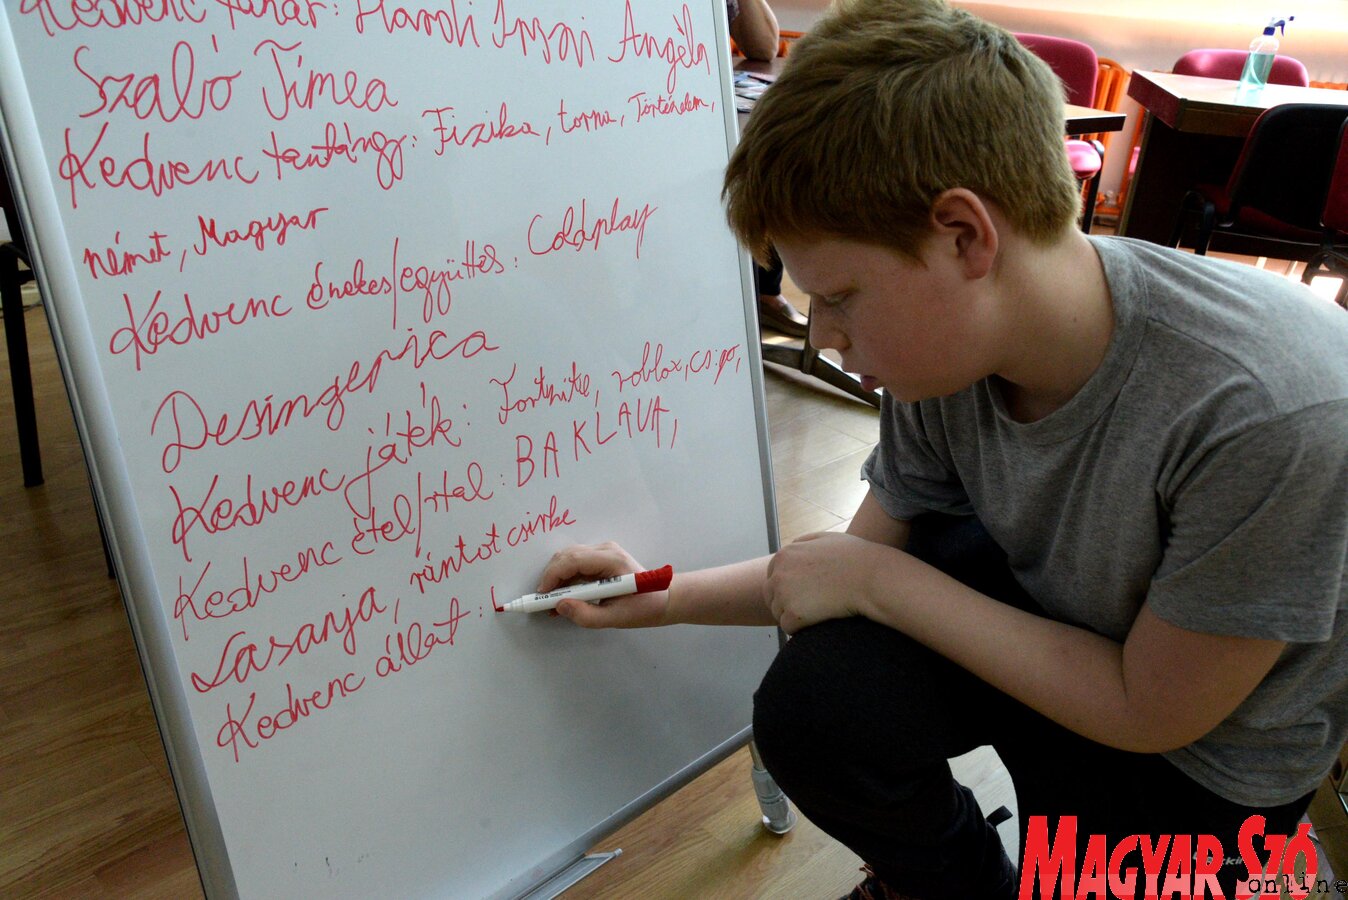 Kedvenc tanár: Angéla
Szabó Tímea
Kedvenc tantárgy: Fizika, torna, Történelem,
német, Magyar
Kedvenc énekes/együttes: Coldplay
Desingerica
Kedvenc játék: Fortnite, roblox, cs:go,
Kedvenc étel/ital: BAKLAVA,
Lasanja, rántot csirke
Kedvenc állat:
MAGYAR SZÓ
online